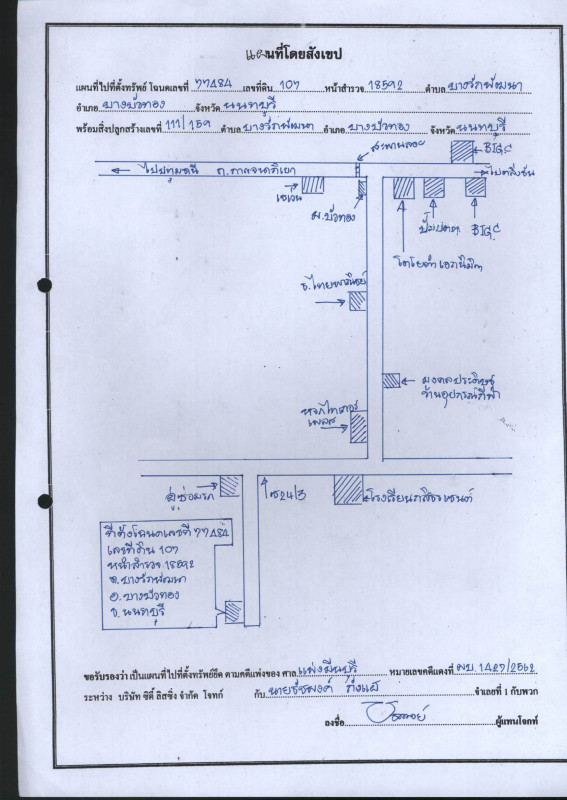 แผนที่โดยสังเขป
แผนที่ไปที่ตั้งทรัพย์ โฉนดเลขที่ 77484 เลขที่ดิน 107 หน้าสำรวจ 18592 ตำบล บางรักพัฒนา
อำเภอ บางบัวทอง จังหวัด นนทบุรี
พร้อมสิ่งปลูกสร้างเลขที่ 111/159 ตำบล บางรักพัฒนา อำเภอ บางบัวทอง จังหวัด นนทบุรี
สะพานลอย
BIGC
ไปปทุมธานี ถ.กาญจนาภิเษก
ไปตลิ่งชัน
ม.บัวทอง
BIGC
โตโยต้า
ธ.ไทยพาณิชย์
มงคลประดิษฐ์
ร้านอุปกรณ์กีฬา
อู่ซ่อมรถ
ซ24/3
โรงเรียน
ที่ตั้งโฉนดเลขที่ 77484
เลขที่ดิน 107
หน้าสำรวจ 18592
ต.บางรักพัฒนา
อ.บางบัวทอง
จ.นนทบุรี
ขอรับรองว่า เป็นแผนที่ไปที่ตั้งทรัพย์ยึด ตามคดีแพ่งของ ศาล แพ่งมีนบุรี หมายเลขคดีแดงที่ ผบ.1427/2562
ระหว่าง บริษัท ซิตี้ ลิสซิ่ง จำกัด โจทก์ กับ นาย จำเลยที่ 1 กับพวก
ลงชื่อ ผู้แทนโจทก์